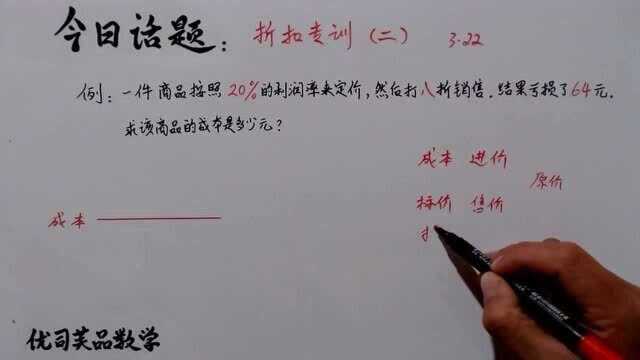 今日话题：折扣专训（二） 3.22
例：一件商品按照20%的利润率来定价，然后打八折销售，结果亏损了64元，
求该商品的成本是多少元？
成本 进价
原价
标价 售价
成本
优司芙品数学